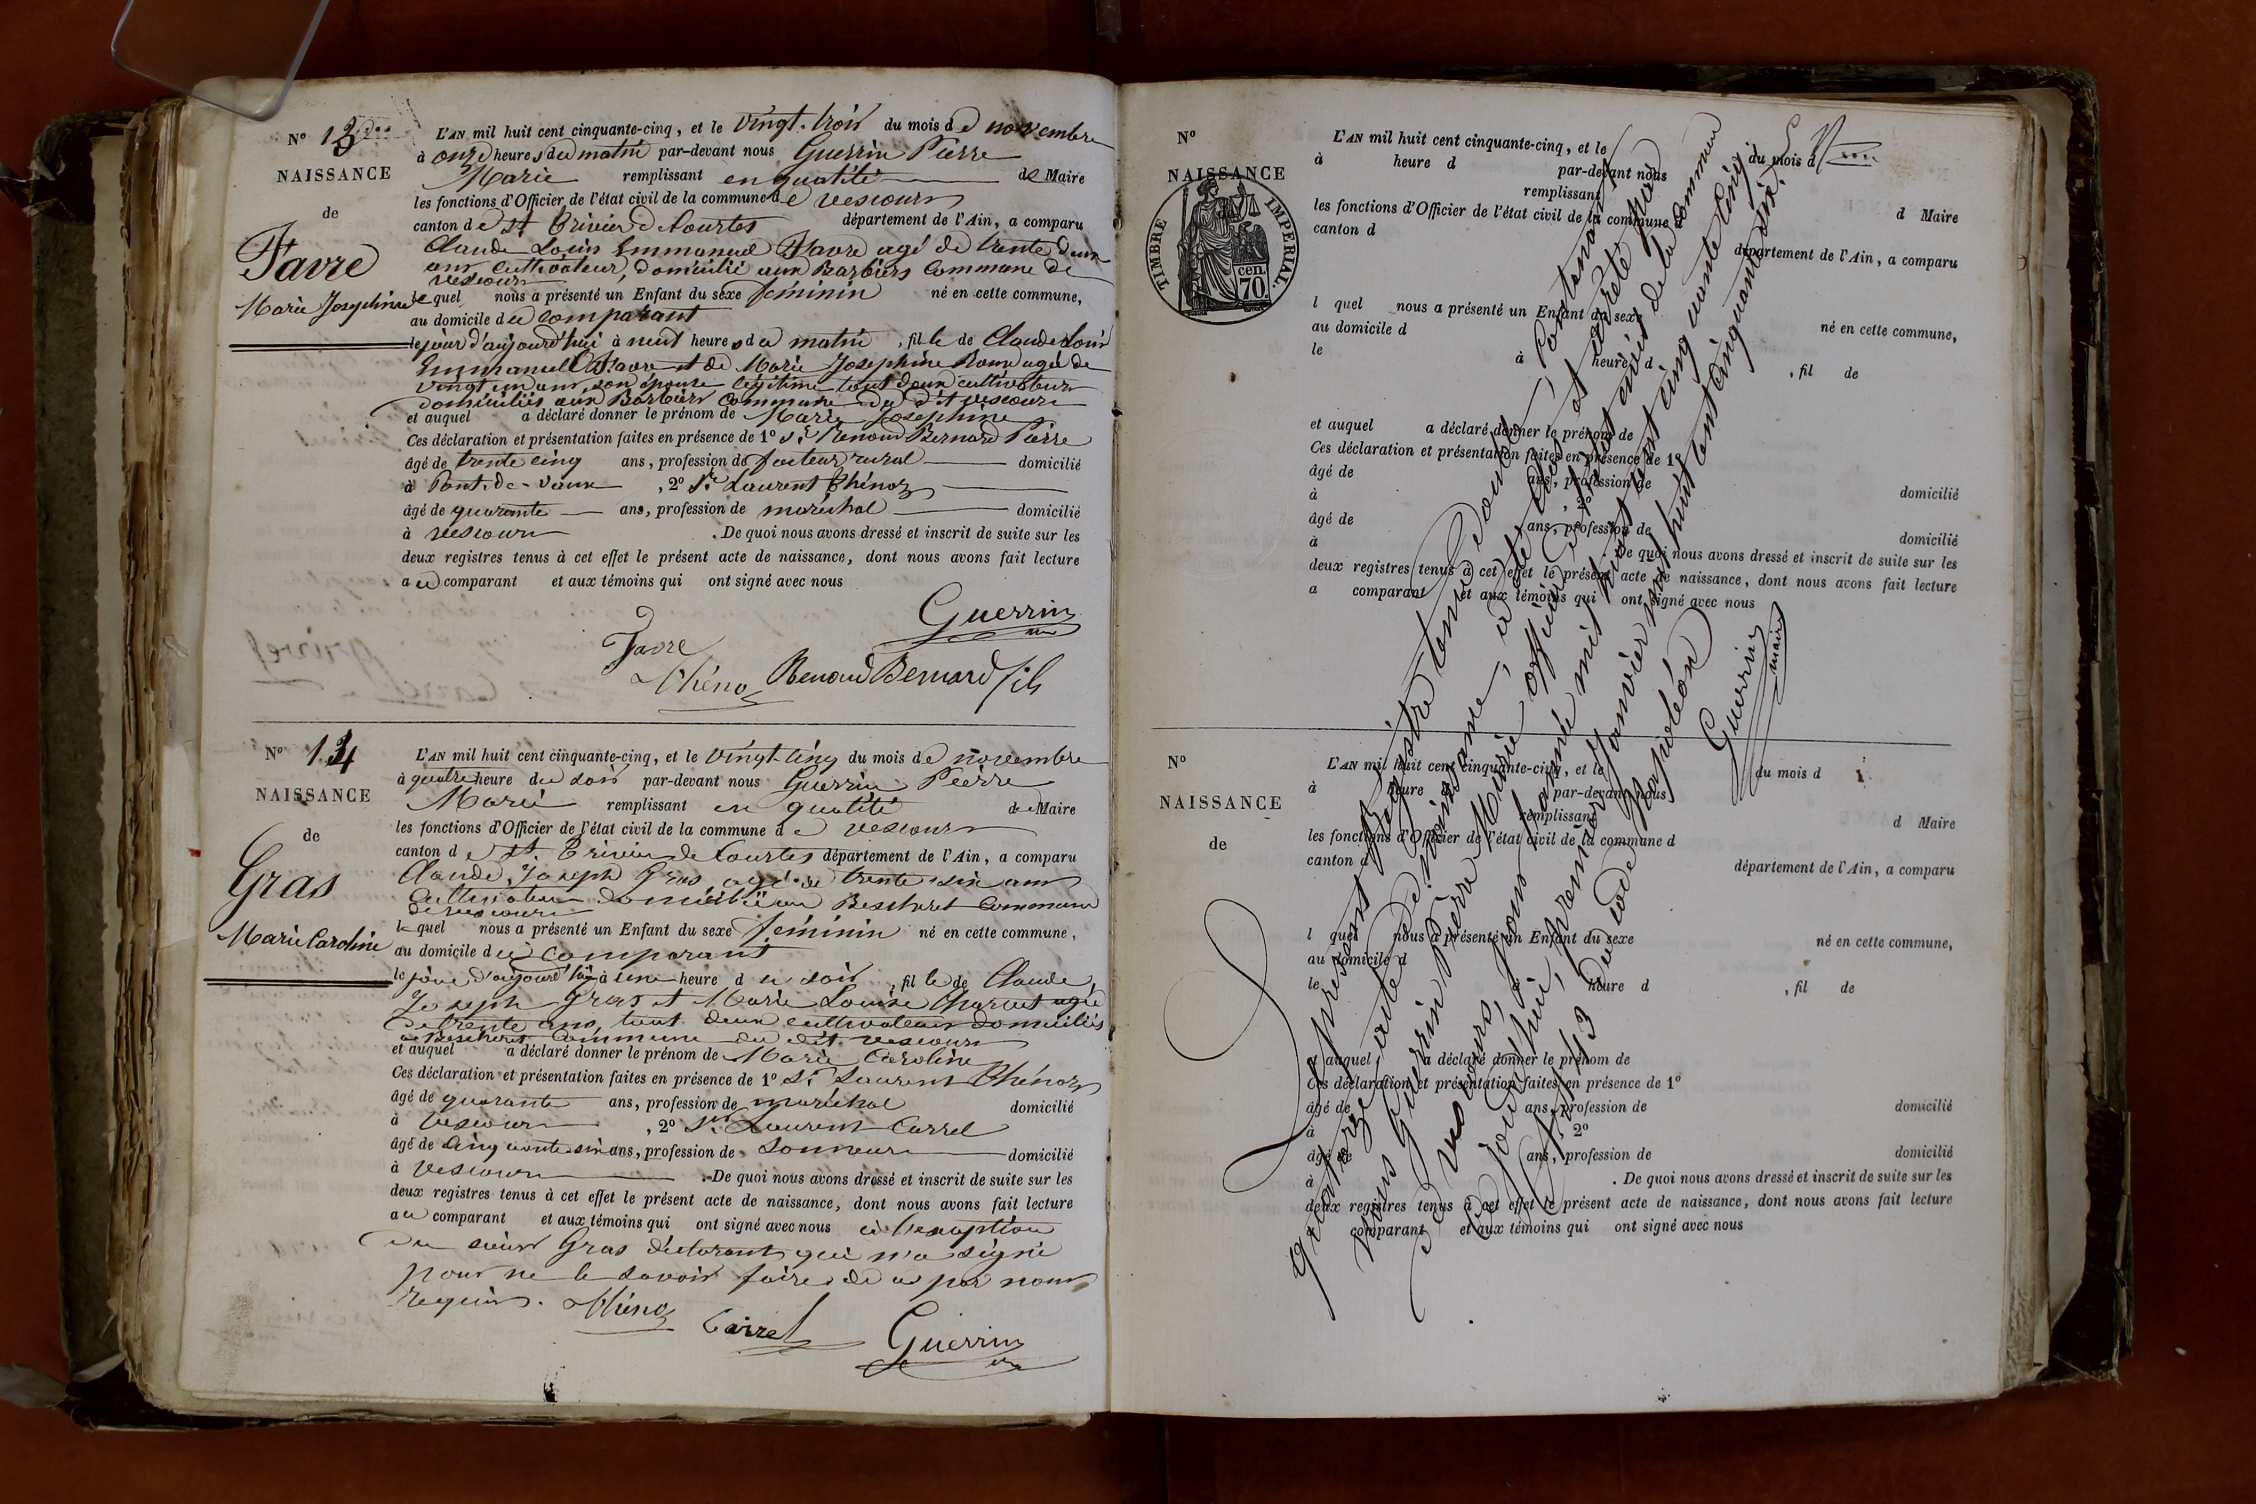 Nº 13
NAISSANCE
de
Favre
Marie Josephine
L'AN mil huit cent cinquante-cinq, et le vingt-trois du mois de novembre
à onze heures du matin par-devant nous Guerrin Pierre
Marie remplissant en qualité de Maire
les fonctions d'Officier de l'état civil de la commune de vescours
canton de St Trivier de Courtes département de l'Ain, a comparu
Claude Louis Emmanuel Favre agé de trente deux
ans cultivateur, domicilié aux Barbiers Commune de
vescours
lequel nous a présenté un Enfant du sexe féminin né en cette commune,
au domicile du comparant
le jour d'aujourd'hui à neuf heures du matin, fille de Claude Louis
Emmanuel Favre et de Marie Josephine agée de
vingt un ans, son épouse légitime tout deux cultivateurs
domiciliés aux Barbiers commune du dit vescours
et auquel a déclaré donner le prénom de Marie Josephine
Ces déclaration et présentation faites en présence de 1º Sr Renoud Bernard Pierre
âgé de trente cinq ans, profession de facteur rural domicilié
à Pont-de-Vaux, 2º Sr Laurent Thénoz
âgé de quarante ans, profession de maréchal domicilié
à vescours. De quoi nous avons dressé et inscrit de suite sur les
deux registres tenus à cet effet le présent acte de naissance, dont nous avons fait lecture
au comparant et aux témoins qui ont signé avec nous
Guerrin
Favre
Thénoz Renoud Bernard fils
Nº 14
NAISSANCE
de
Gras
Marie Caroline
L'AN mil huit cent cinquante-cinq, et le vingt-cinq du mois de novembre
à quatre heure du soir par-devant nous Guerrin Pierre
Marie remplissant en qualité de Maire
les fonctions d'Officier de l'état civil de la commune de vescours
canton de St. Trivier de Courtes département de l'Ain, a comparu
Claude, Joseph Gras agé de trente six ans
Cultivateur domicilié au Bescheret Commune
de vescours
lequel nous a présenté un Enfant du sexe féminin né en cette commune,
au domicile du comparant
le jour d'aujourd'hui à une heure du soir, fille de Claude,
Joseph Gras et Marie Louise agée
de trente ans, tout deux cultivateurs domiciliés
à Bescheret Commune du dit vescours
et auquel a déclaré donner le prénom de Marie Caroline
Ces déclaration et présentation faites en présence de 1º Sr Laurent Thénoz
âgé de quarante ans, profession de maréchal domicilié
à vescours, 2º Sr Laurent Carrel
âgé de cinquante six ans, profession de Sonneur domicilié
à vescours. De quoi nous avons dressé et inscrit de suite sur les
deux registres tenus à cet effet le présent acte de naissance, dont nous avons fait lecture
au comparant et aux témoins qui ont signé avec nous à l'exception
du sieur Gras déclarant qui n'a signé
pour ne le savoir faire de ce par nous
requis. Thénoz
Carrel
Guerrin
Nº
NAISSANCE
TIMBRE IMPERIAL.
cen.
70.
L'AN mil huit cent cinquante-cinq, et le du mois d
à heure d par-devant nous
remplissant d Maire
les fonctions d'Officier de l'état civil de la commune d
canton d département de l'Ain, a comparu
l quel nous a présenté un Enfant du sexe né en cette commune,
au domicile d
le à heure d , fil de
et auquel a déclaré donner le prénom de
Ces déclaration et présentation faites en présence de 1º
âgé de ans, profession de
à domicilié
2º
âgé de ans, profession de
à domicilié
. De quoi nous avons dressé et inscrit de suite sur les
deux registres tenus à cet effet le présent acte de naissance, dont nous avons fait lecture
a comparant et aux témoins qui ont signé avec nous
Le présent Régistre tenu double, Contenant
quatorze actes de naissance, a été clos et arrêté par
nous Guerrin Pierre Marie officier de l'état civil de la Commune
de vescours, pour l'année mil huit cent cinquante cinq,
Cejourd'hui, premier Janvier mil huit cent cinquante six.
Art 43 du code Napoléon
Guerrin
maire
Nº
NAISSANCE
de
L'AN mil huit cent cinquante-cinq, et le du mois d
à heure d par-devant nous
remplissant d Maire
les fonctions d'Officier de l'état civil de la commune d
canton d département de l'Ain, a comparu
l quel nous a présenté un Enfant du sexe né en cette commune,
au domicile d
le à heure d , fil de
et auquel a déclaré donner le prénom de
Ces déclaration et présentation faites en présence de 1º
âgé de ans, profession de domicilié
à 2º
âgé de ans, profession de domicilié
à . De quoi nous avons dressé et inscrit de suite sur les
deux registres tenus à cet effet le présent acte de naissance, dont nous avons fait lecture
a comparant et aux témoins qui ont signé avec nous